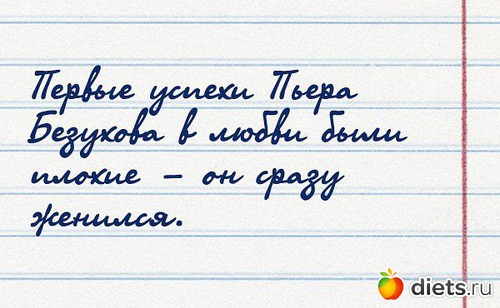 Первые успехи Пьера
Безухова в любви были
плохие – он сразу
женился.
diets.ru